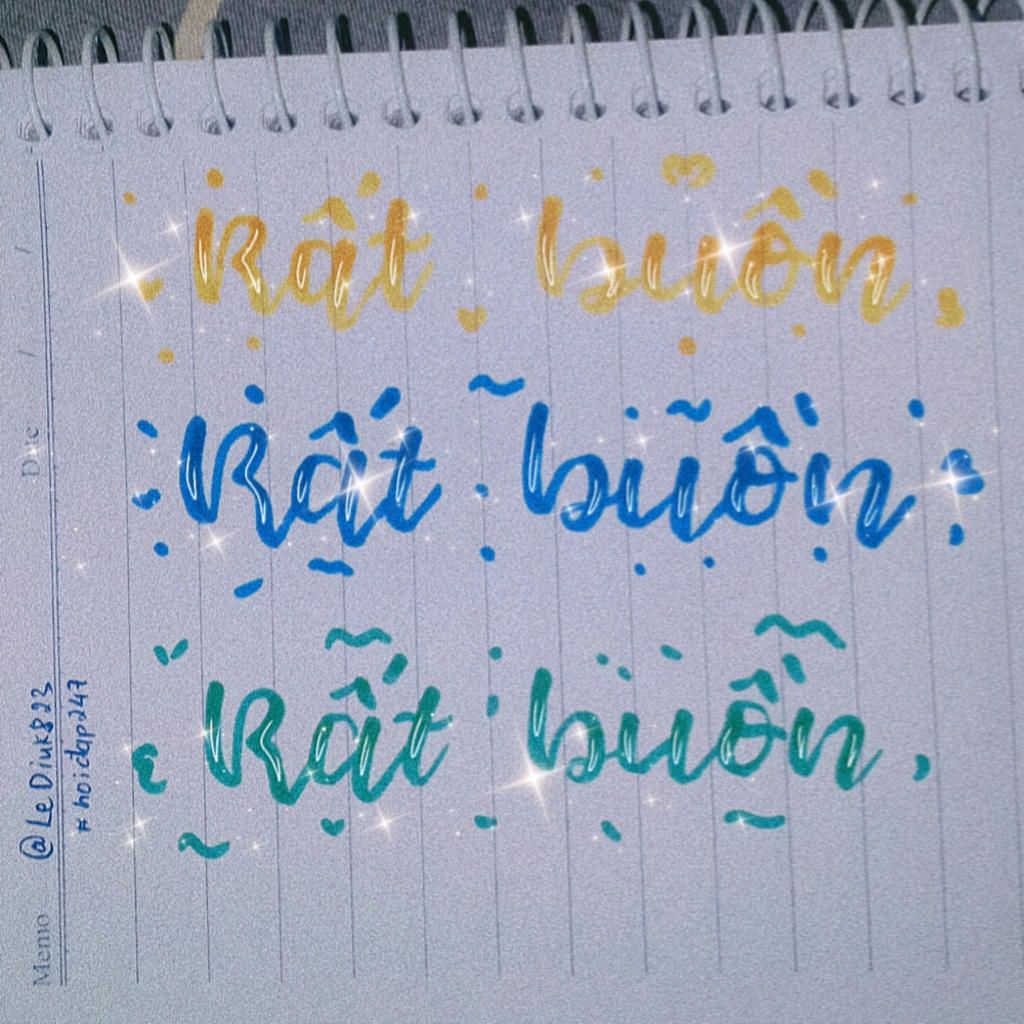 Rất buồn
Rất buồn
Rất buồn
@LeDiuk823
#hoidap247
Memo
Date / /